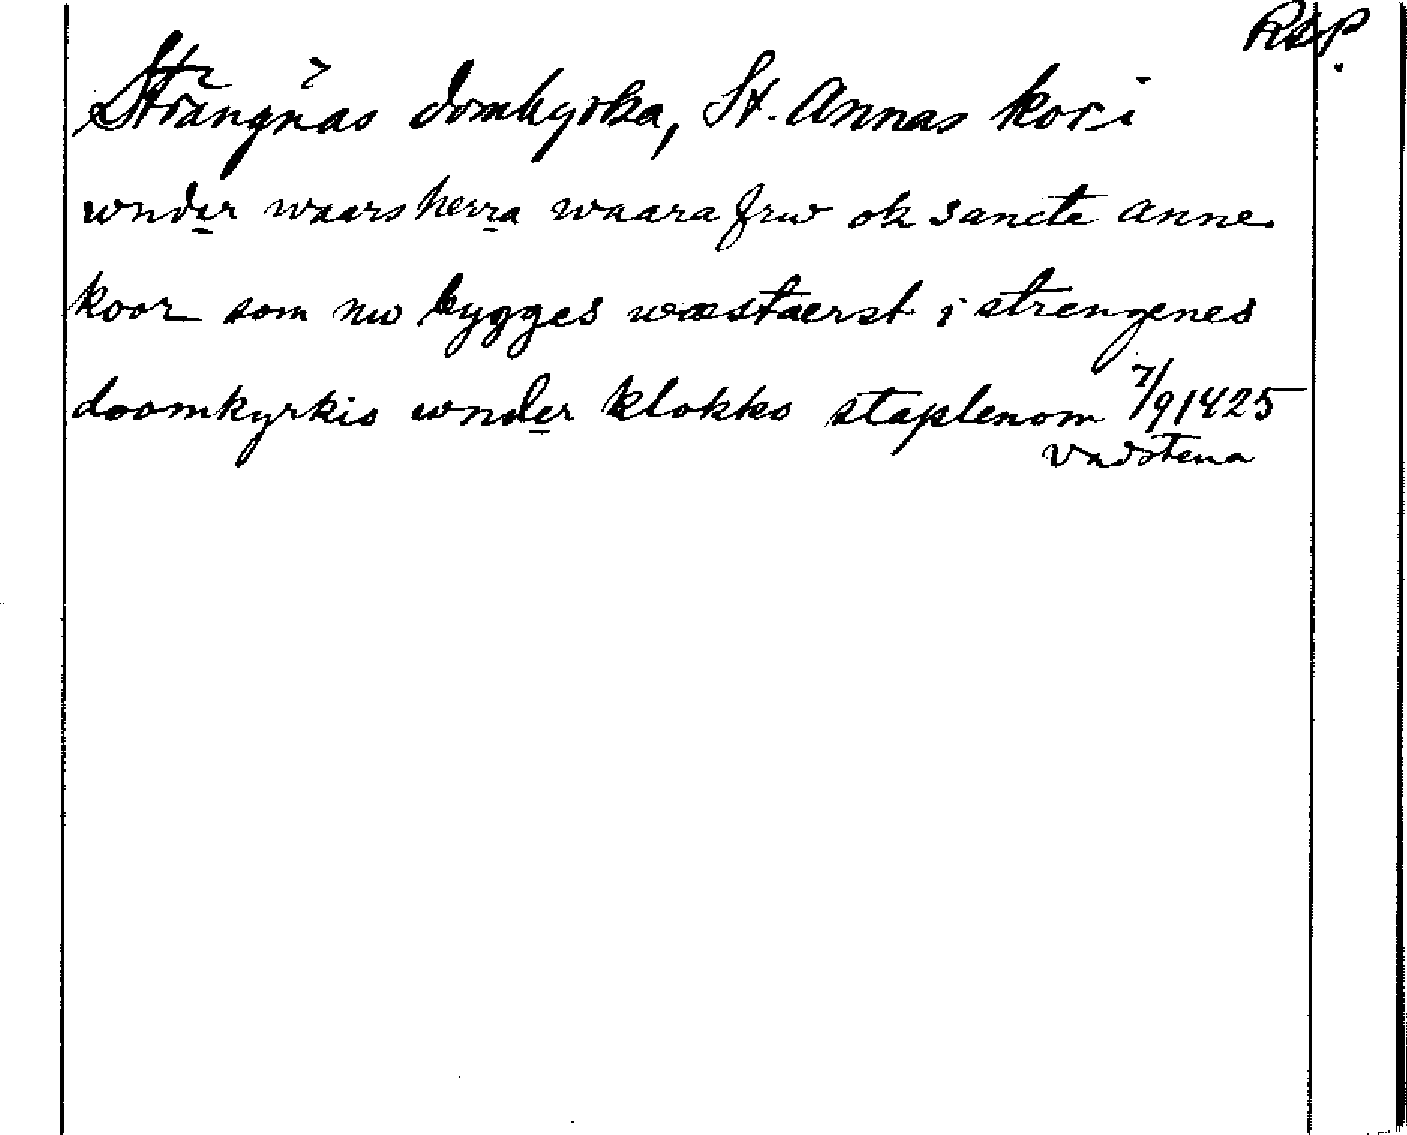 RAP.
Strängnäs domkyrka, St. Annas kor i
wnder waars herra waara frw ok sancte anne
koor som nw bygges wæstaerst i strengenes
doomkyrkio wnder klokko staplenom 7/9 1425
Vadstena